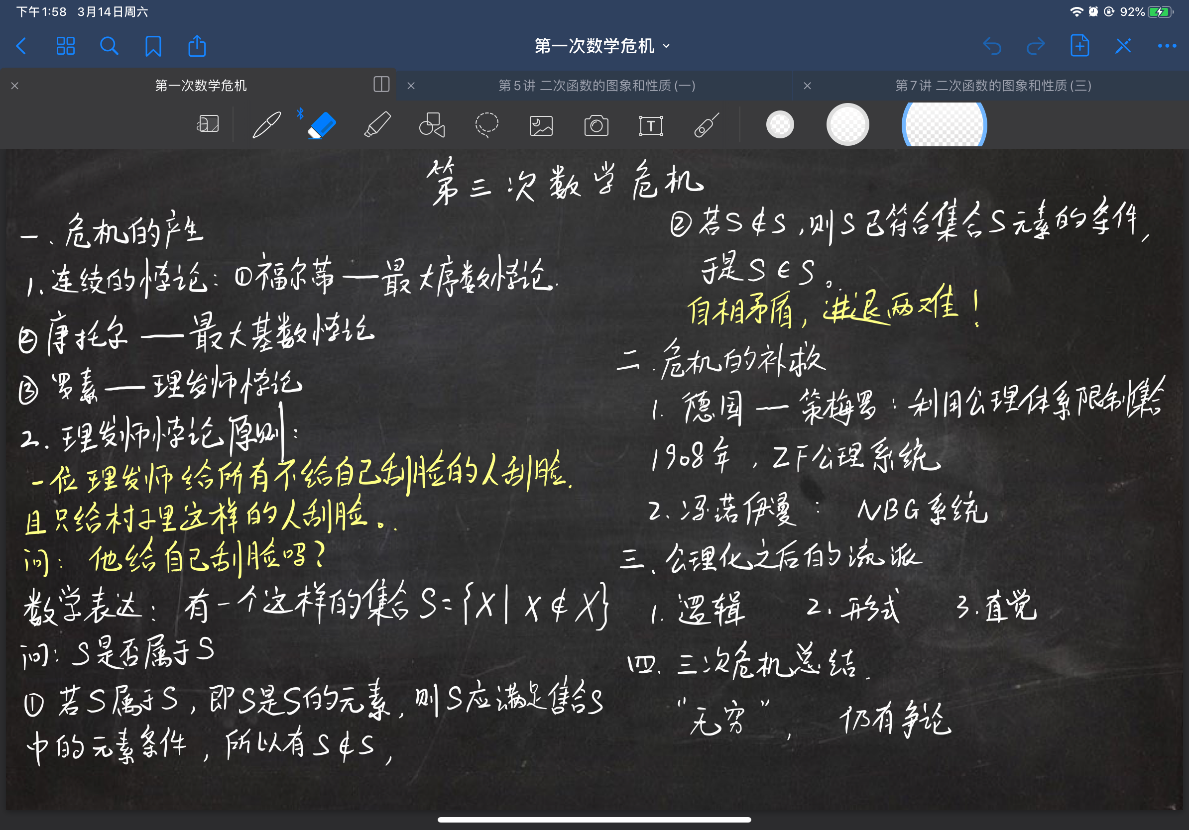 下午1:58 3月14日周六
92%
第一次数学危机
第一次数学危机
第5讲 二次函数的图象和性质(一)
第7讲 二次函数的图象和性质(三)
第三次数学危机
一、危机的产生
1.连续的悖论：①福尔蒂——最大序数悖论.
②康托尔——最大基数悖论
③罗素——理发师悖论
2.理发师悖论原则：
一位理发师给所有不给自己刮脸的人刮脸.
且只给村子里这样的人刮脸。
问：他给自己刮脸吗？
数学表达：有一个这样的集合S={X|X∉X}
问：S是否属于S
①若S属于S，即S是S的元素，则S应满足集合S
中的元素条件，所以有S∉S，
②若S∉S，则S已符合集合S元素的条件，
于是S∈S。
自相矛盾，进退两难！
二.危机的补救
1.德国—策梅罗：利用公理体系限制集合
1908年，ZF公理系统
2.冯诺伊曼：NBG系统
三、公理化之后的流派
1.逻辑 2.形式 3.直觉
四.三次危机总结.
“无穷”，仍有争论